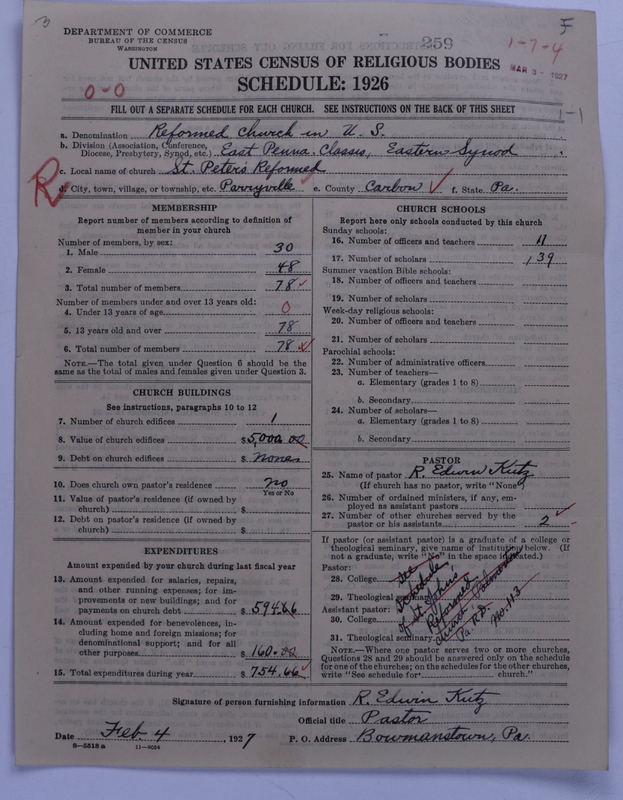 3
F
DEPARTMENT OF COMMERCE
BUREAU OF THE CENSUS
WASHINGTON
259
1-7-4
MAR 3 - 1927
UNITED STATES CENSUS OF RELIGIOUS BODIES
SCHEDULE: 1926
0-0
FILL OUT A SEPARATE SCHEDULE FOR EACH CHURCH. SEE INSTRUCTIONS ON THE BACK OF THIS SHEET
1-1
a. Denomination Reformed Church in U. S.
b. Division (Association, Conference, Diocese, Presbytery, Synod, etc.) East Penna. Classis, Eastern Synod
c. Local name of church St. Peters Reformed
R
d. City, town, village, or township, etc. Parryville e. County Carbon f. State Pa.
MEMBERSHIP
Report number of members according to definition of
member in your church
Number of members, by sex:
1. Male 30
2. Female 48
3. Total number of members 78
Number of members under and over 13 years old:
4. Under 13 years of age 0
5. 13 years old and over 78
6. Total number of members 78
NOTE.—The total given under Question 6 should be
the same as the total of males and females given under Question 3.
CHURCH BUILDINGS
See instructions, paragraphs 10 to 12
7. Number of church edifices 1
8. Value of church edifices $5,000.00
9. Debt on church edifices $ None
10. Does church own pastor's residence no
Yes or No
11. Value of pastor's residence (if owned by
church) $
12. Debt on pastor's residence (if owned by
church) $
EXPENDITURES
Amount expended by your church during last fiscal year
13. Amount expended for salaries, repairs,
and other running expenses; for im-
provements or new buildings; and for
payments on church debt $ 594.66
14. Amount expended for benevolences, in-
cluding home and foreign missions; for
denominational support; and for all
other purposes $ 160.00
15. Total expenditures during year $ 754.66
CHURCH SCHOOLS
Report here only schools conducted by this church
Sunday schools:
16. Number of officers and teachers 11
17. Number of scholars 139
Summer vacation Bible schools:
18. Number of officers and teachers
19. Number of scholars
Week-day religious schools:
20. Number of officers and teachers
21. Number of scholars
Parochial schools:
22. Number of administrative officers
23. Number of teachers—
a. Elementary (grades 1 to 8)
b. Secondary
24. Number of scholars—
a. Elementary (grades 1 to 8)
b. Secondary
PASTOR
25. Name of pastor R. Edwin Kutz
(If church has no pastor, write "None")
26. Number of ordained ministers, if any, em-
ployed as assistant pastors
27. Number of other churches served by the
pastor or his assistants 2
If pastor (or assistant pastor) is a graduate of a college or
theological seminary, give name of institution below. (If
not a graduate, write "No" in the space indicated.)
Pastor:
28. College
29. Theological seminary
Assistant pastor:
30. College
31. Theological seminary
See
Schedule
of St. John's
Reformed
Church, Palmerton
Pa. R.D. No. #3
NOTE.—Where one pastor serves two or more churches,
Questions 28 and 29 should be answered only on the schedule
for one of the churches; on the schedules for the other churches,
write "See schedule for church."
Signature of person furnishing information R. Edwin Kutz
Official title Pastor
Date Feb 4 1927 P. O. Address Bowmanstown, Pa.
8-5518a 11-9004